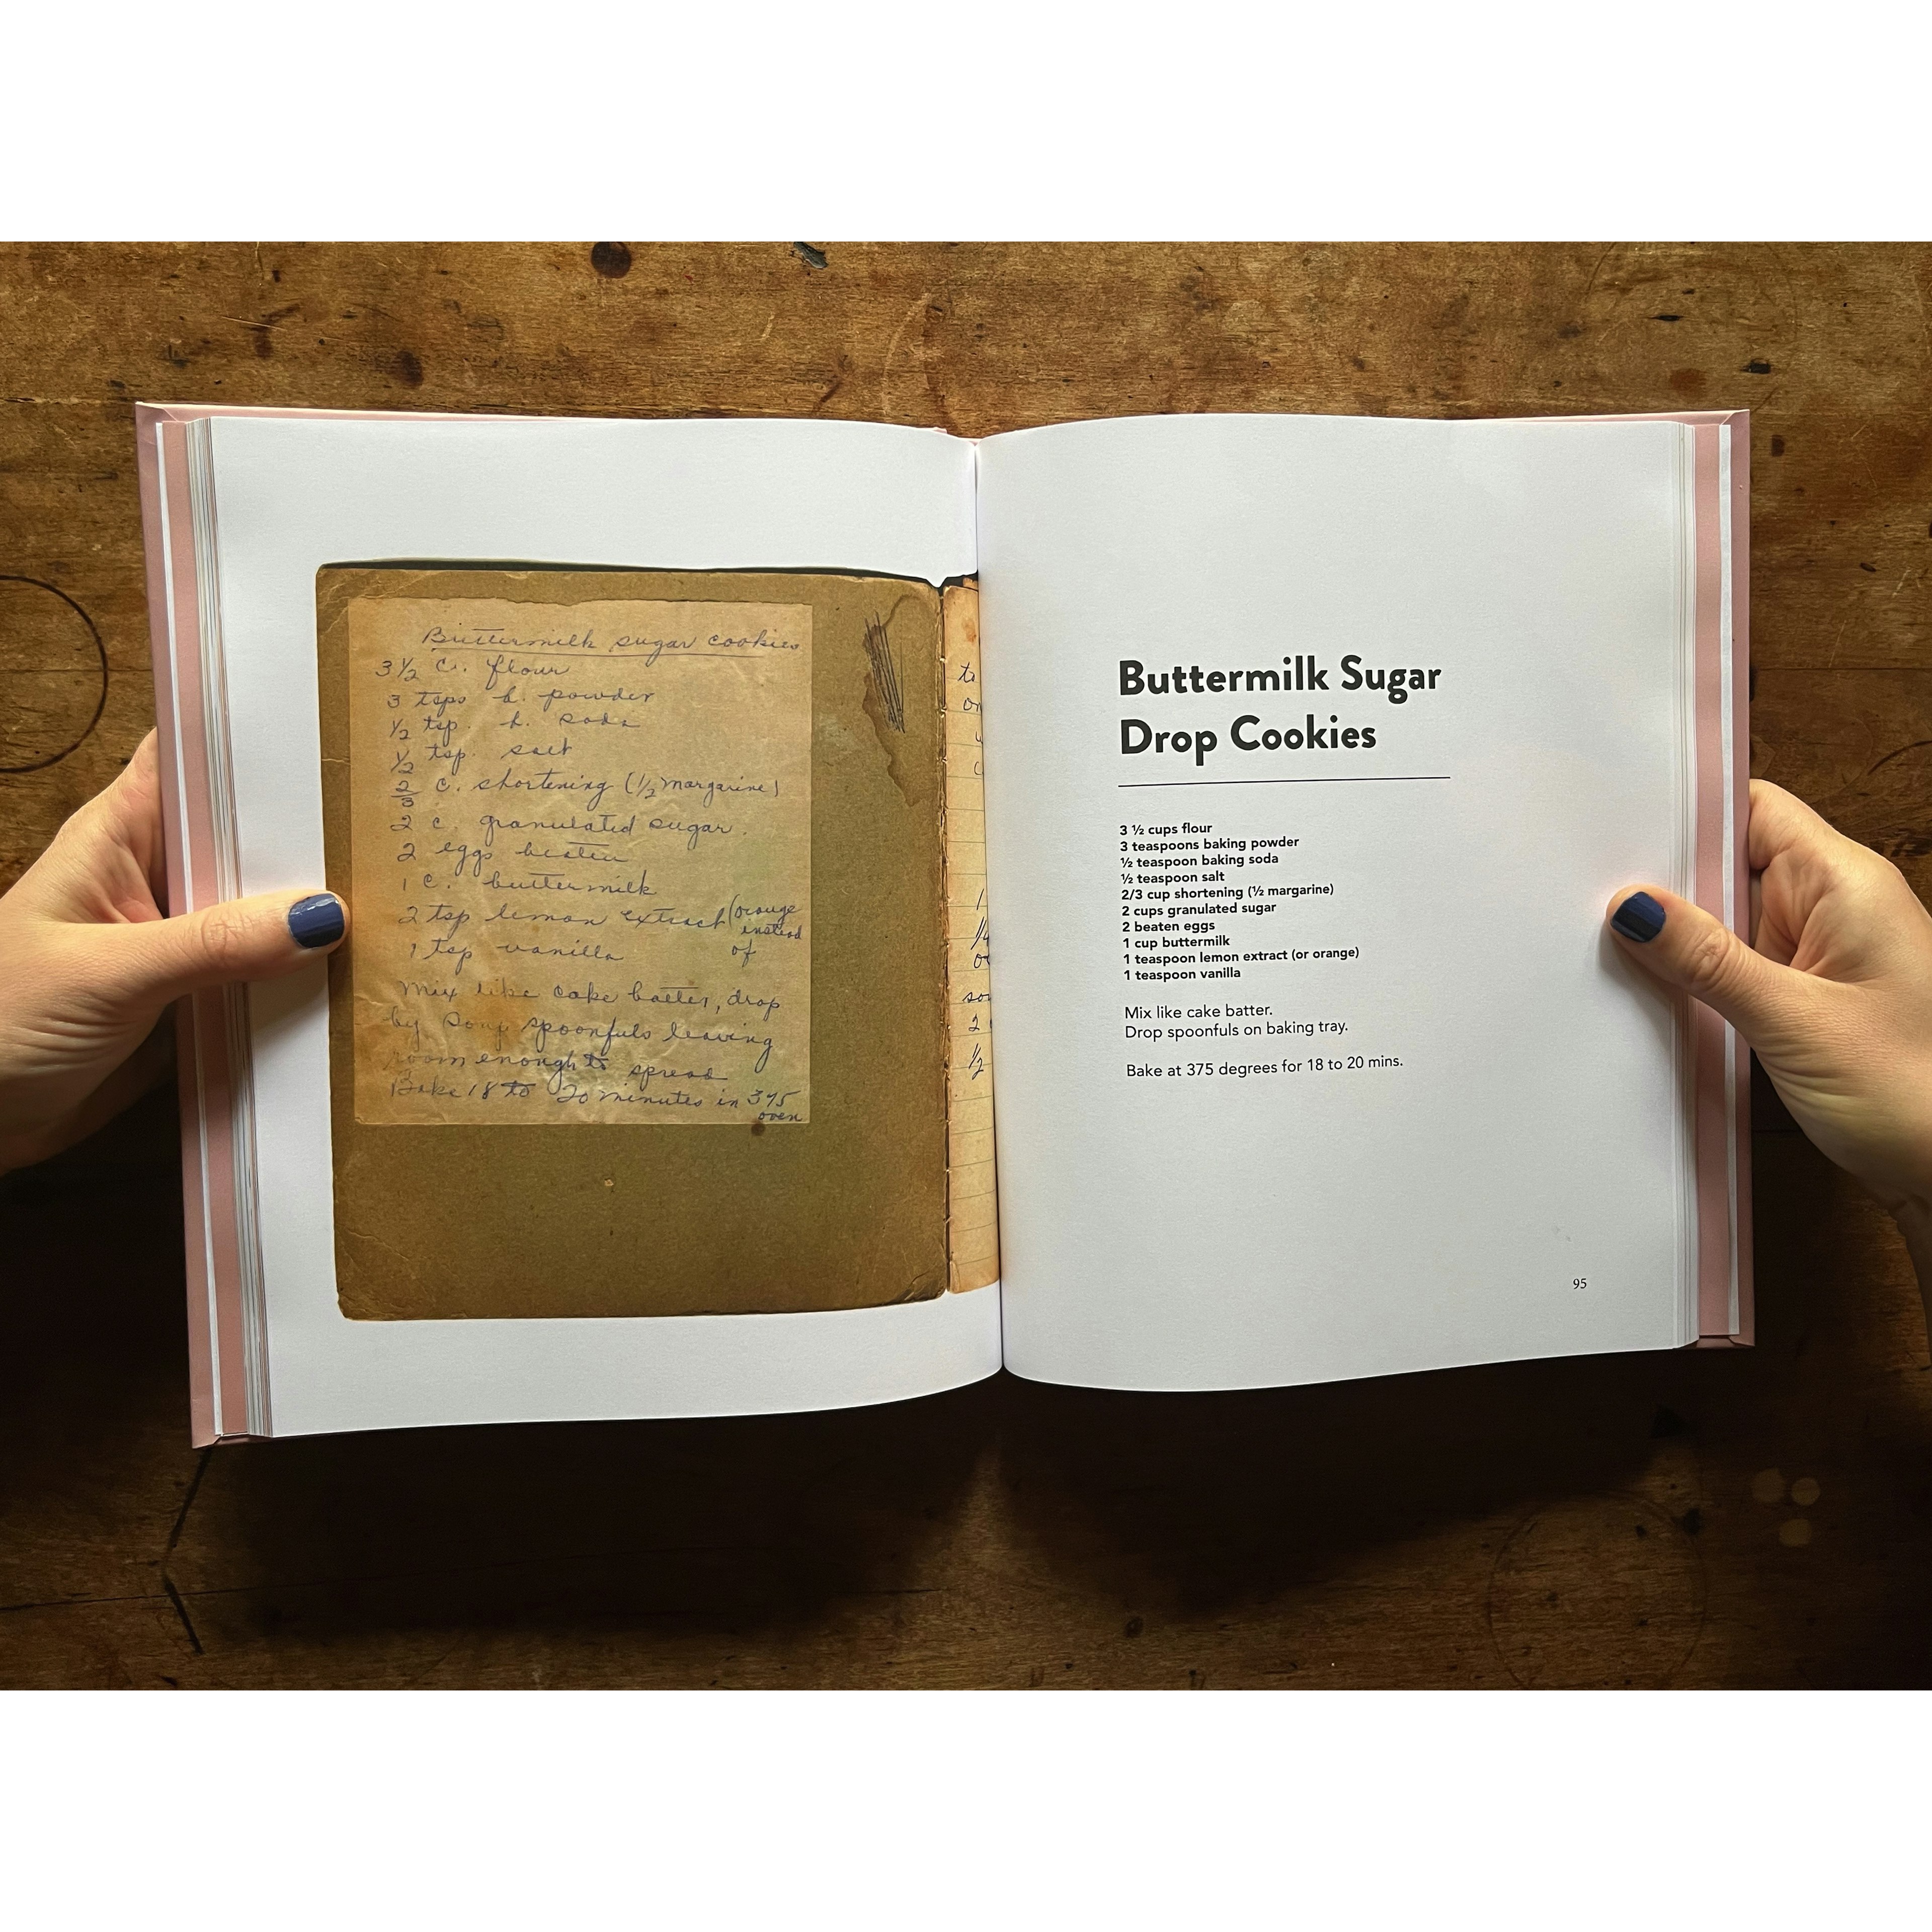 Buttermilk sugar cookies
3 1/2 c. flour
3 tsps b. powder
1/2 tsp. b. soda
1/2 tsp. salt
2/3 c. shortening (1/2 margarine)
2 c. granulated sugar.
2 eggs beaten
1 c. buttermilk
2 tsp lemon extract (orange instead of
1 tsp vanilla
Mix like cake batter, drop
by soup spoonfuls leaving
room enough to spread
Bake 18 to 20 minutes in 375
oven
1
2
1/2
Buttermilk Sugar
Drop Cookies
3 ½ cups flour
3 teaspoons baking powder
½ teaspoon baking soda
½ teaspoon salt
2/3 cup shortening (½ margarine)
2 cups granulated sugar
2 beaten eggs
1 cup buttermilk
1 teaspoon lemon extract (or orange)
1 teaspoon vanilla
Mix like cake batter.
Drop spoonfuls on baking tray.
Bake at 375 degrees for 18 to 20 mins.
95